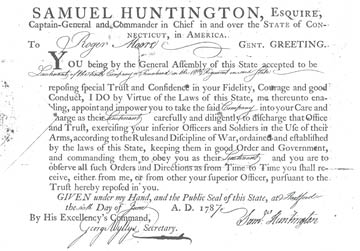 SAMUEL HUNTINGTON, ESQUIRE,
Captain-General and Commander in Chief in and over the STATE OF CON-
NECTICUT, IN AMERICA.
To Roger Moore GENT. GREETING.
YOU being by the General Assembly of this State accepted to be
Lieutenant of the Company in the Regiment in said State
reposing special Trust and Confidence in your Fidelity, Courage and good
Conduct, I DO by Virtue of the Laws of this State, me thereunto en-
abling, appoint and impower you to take the said Company into your Care and
Charge as their Lieutenant carefully and diligently to discharge that Office
and Trust, exercising your inferior Officers and Soldiers in the Use of their
Arms, according to the Rules and Discipline of War, ordained and established
by the laws of this State, keeping them in good Order and Government,
and commanding them to obey you as their Lieutenant and you are to
observe all such Orders and Directions as from Time to Time you shall re-
ceive, either from me, or from other your superior Officer, pursuant to the
Trust hereby reposed in you.
GIVEN under my Hand, and the Public Seal of this State, at Hartford
the Day of June A. D. 1787
By His Excellency's Command,
George Wyllys Secretary.
Saml. Huntington